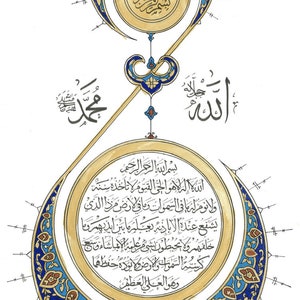 بسم الله الرحمن الرحيم
الله جل جلاله
محمد
بسم الله الرحمن الرحيم
الله لا إله إلا هو الحي القيوم لا تأخذه سنة
ولا نوم له ما في السموات وما في الأرض من ذا الذي
يشفع عنده إلا بإذنه يعلم ما بين أيديهم وما
خلفهم ولا يحيطون بشيء من علمه إلا بما شاء وسع
كرسيه السموات والأرض ولا يؤده حفظهما
وهو العلي العظيم